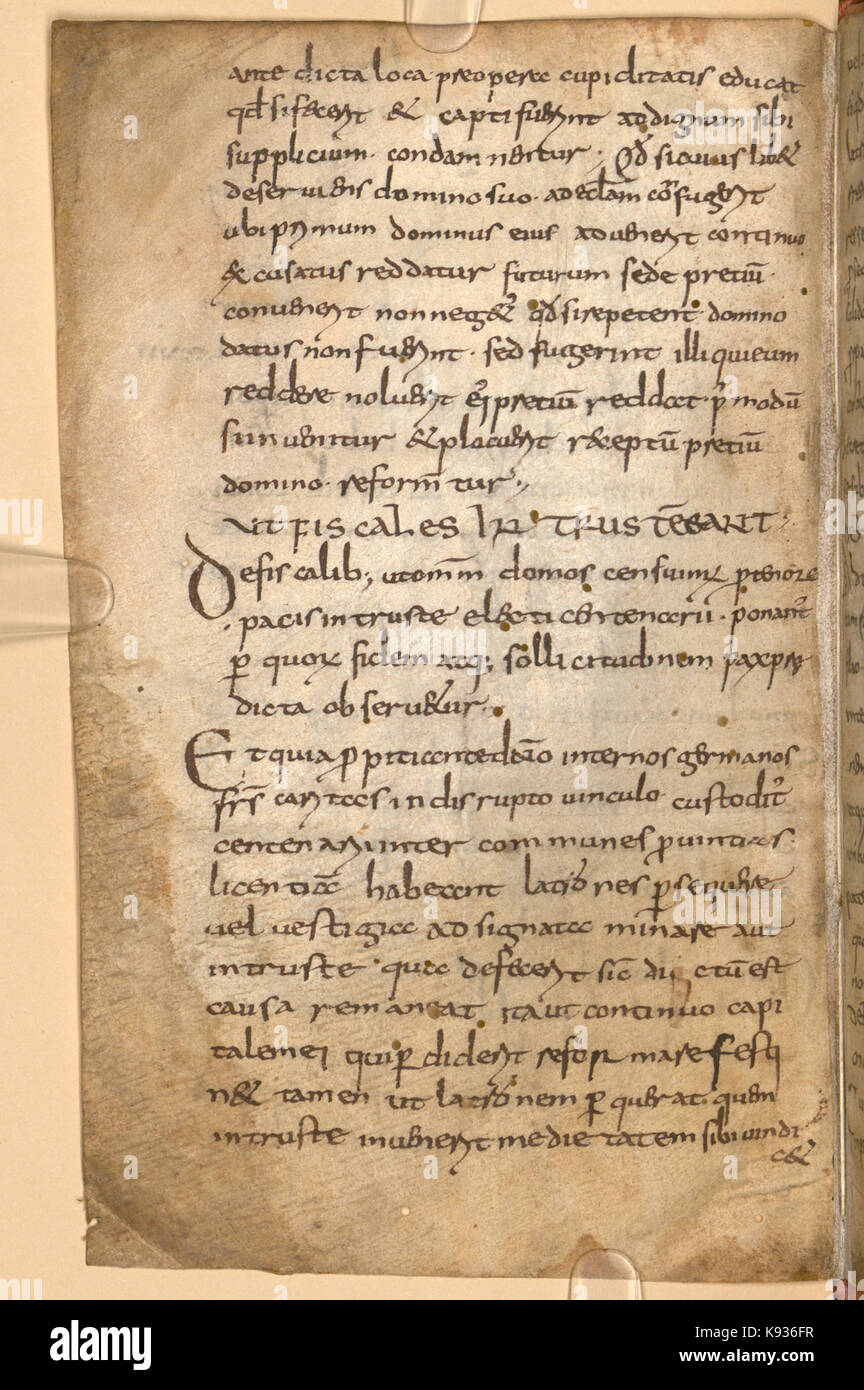 ante dicta loca pro opere cupiditatis educat
qd si fecerit & capti fuerint ad dignum sibi
supplicium · condamnentur ; Qd si cuius lib&
deserviens domino suo · ad eclam confugerit
ubi primum dominus eius advenerit continuo
&cusatus reddatur futurum se de pretiū ·
convenerit non neg&ur qd si repetenti domino
datus non fuerint · sed fugerint illi qui eum
reddere noluerit eī pretiū reddat modū
si invenitur & placuerit r&eptū pretiū
domino · reformtur ;
UT FISCALES IN TRUSTE
De fiscalib; ut omm domos censuimus p tenore
pacis in truste electi centenarii · ponant
p quorum fidem atq; sollicitudinem pax pre
dicta observ&ur ·
Et quia ppitiante dō inter nos germanos
frs caritas indisrupto vinculo custodit
centenarii inter communes pvintias ·
licentia habeant latrones psequere
vel vestigia adsignata minare aut
in truste qua defecerit sic dictū est
causa remaneat ita ut continuo capi
tale mei qui pdiderit reformare festi
n& tamen ut latronem pquerat quem
in truste invenerit medietatem sibi vindi
c&
alamy
Image ID: K936FR
www.alamy.com